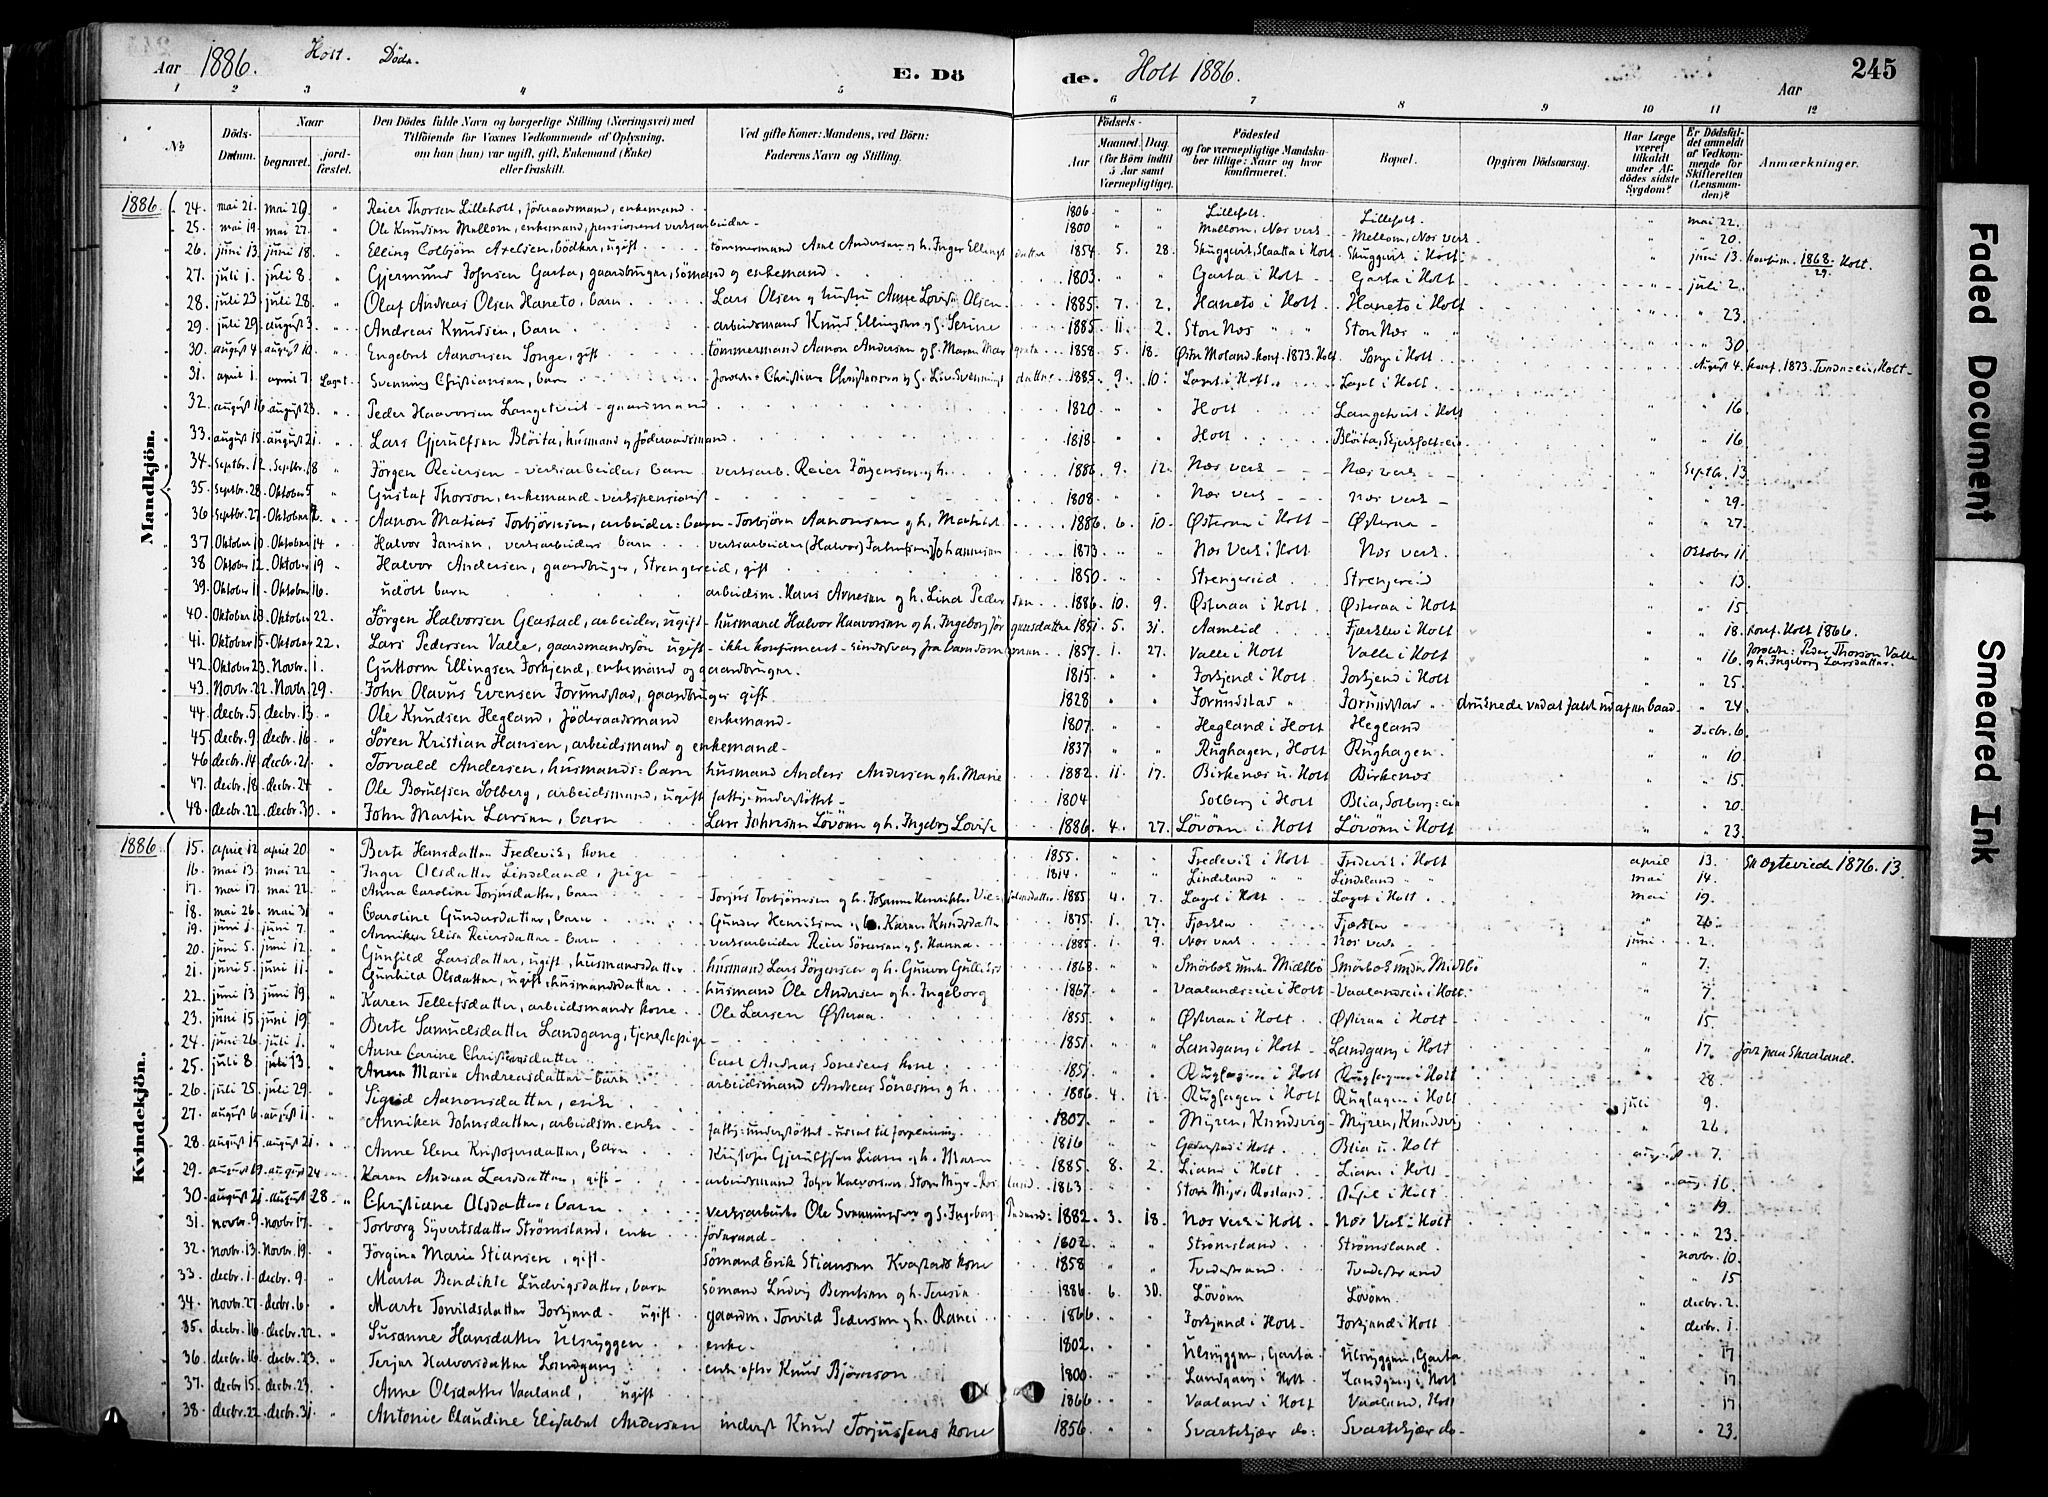 Aar 1886. Holt. Döde. E. Dö de. Holt 1886. Aar 245
1 2 3 4 5 6 7 8 9 10 11 12
No
Döds-Datum.
Naar
begravet.
jord-fæstet.
Den Dödes fulde Navn og borgerlige Stilling (Næringsvei) med Tilföiende for Voxnes Vedkommende af Oplysning, om han (hun) var ugift, gift, Enkemand (Enke) eller fraskilt.
Ved gifte Koner: Mandens, ved Börn: Faderens Navn og Stilling.
Födsels-
Aar
Maaned. Dag.
(for Börn indtil 5 Aar samt Værnepligtige).
Födested og for værnepligtige Mandskaber tillige: Naar og hvor konfirmeret.
Bopæl.
Opgiven Dödsaarsag.
Har Læge været tilkaldt under Afdödes sidste Sygdom?
Er Dödsfaldet anmeldt af Vedkommende for Skifteretten (Lensmanden)?
Anmærkninger.
Mandkjön.
1886 24. mai 21. mai 29 " Reier Thorsen Lilleholt, föderaadsmand, enkemand. 1806 " " Lilleholt. Lilleholt. " mai 22.
25. mai 19. mai 27. " Ole Knudsen Mellom, enkemand, pensioneret verksarbeider. 1800 " " Mellom, Næs verk Mellom, Næs verk " " 20.
26. juni 13. juni 18. " Elling Colbjörn Axelsen, bödker, ugift. tömmermand Axel Andersen og h. Inger Ellingsdatter 1854 5. 28. Skuggevik, Slaatta i Holt Skuggevik i Holt. " juni 13. konfirm. 1868 Holt.
27. juli 1. juli 8. " Gjermund Johnsen Garta, gaardbruger, sömand og enkemand. 1803 " " Garta i Holt Garta i Holt " juli 2.
28. juli 23. juli 28. " Olaf Andreas Olsen Haneto, barn Lars Olsen og hustru Anne Lovise Olsen 1885 7. 2. Haneto i Holt Haneto i Holt " " 23.
29. juli 29. august 3 " Andreas Knudsen, barn arbeidsmand Knud Ellingsen og h. Serine 1885 11. 2. Ston Næs " " Ston Næs " " " " 30
30. august 4. august 10. " Engebret Aanonsen Songe, gift tömmermand Aanon Andersen og h. Maren Margrete 1858 5. 18. Østre Moland. konf. 1873. Holt Songe i Holt. " August 4. konf. 1873.
31. april 1. april 7. Laget. Svenning Christiansen, barn Forældre: Christian Christensen og h. Liv Svenningsdatter 1885 9. 10. Laget i Holt. Laget i Holt.
32. august 16. august 23. " Peder Haavorsen Langetveit - gaardmand 1820 " " Holt Langetveit i Holt " " 16
33. august 15. august 21. " Lars Gjerulfsen Blöita, husmand og föderaadsmand 1818 " " Holt " " 16
34. Septbr. 12. Septbr. 18 " Jörgen Reiersen - verksarbeiders barn verksarb. Reier Jörgensen og h. 1886 9. 12. Næs verk Næs verk " Septbr. 13
35. Septbr. 28. Oktober 5 " Gustaf Thorson, enkemand - verkspensionist 1808 " " Næs verk Næs verk " " 29.
36. Septbr. 27. Oktober " Aanon Matias Torbjörnsen, arbeider=barn Torbjörn Aanonsen og h. Mathilde 1886. 6. 10. Østeraa i Holt Østeraa " " 27.
37. Oktober 10. Oktober 14 " Halvor Jansen, verksarbeiders barn verksarbeider (Halvor) Johannesen 1873 " " Næs Verk i Holt Næs verk. " Oktober 11
38. Oktober 12. Oktober 19 " Halvor Andersen, gaardbruger, Strengereid, gift 1850. " " Strengereid Strengereid " " 13
39. Oktober 11. Oktober 16. udöbt barn arbeidsm. Hans Arnesen og h. Lina Pedersen 1886. 10. 9. Østeraa i Holt. Østeraa i Holt " " 15
40. Oktober 13. Oktober 22. Jörgen Halvorsen Glastad, arbeider, ugift husmand Halvor Haavorsen og h. Ingeborg Jörgensdatter 1851 5. 31. Aamlid Fjærslev i Holt " " 18. konf. Holt 1866.
41. Oktober 15. Oktober 22. " Lars Pedersen Valle, gaardmandssön ugift - ikke konfirmeret - sindssvag fra barndommen. 1857. 1. 27. Valle i Holt Valle i Holt " " 16. Foreldre: Peder Thorson Valle og h. Ingeborg Larsdatter.
42. Oktober 23. Novbr. 1. " Guttorm Ellingsen Forkjend, enkemand og gaardbruger. 1815 " " Forkjend i Holt Forkjend i Holt " " 25.
43. Novbr. 22. Novbr. 29. " John Olavus Evensen Forundstad, gaardbruger gift 1828 " " Forundstad " Forundstad " druknede ved at falde ud af en baad " " 24
44. decbr. 5. decbr. 13 " Ole Knudsen Hegland, föderaadsmand enkemand 1807. " " Hegland i Holt Hegland " Decbr. 6
45. decbr. 9. decbr. 16 " Sören Kristian Hansen, arbeidsmand og enkemand 1837 " " Rughagen, Holt Rughagen. " " 10
46. decbr. 14. decbr. 21. " Torvald Andersen, husmands=barn husmand Anders Andersen og h. Marie 1882. 11. 17. Birkenæs u. Holt Birkenæs " " 15.
47. decbr. 18. decbr. 24 " Ole Bærulfsen Solberg, arbeidsmand, ugift fattig-understöttet 1804 " " Solberg i Holt Blia, Solberg=eie " " 20.
48. decbr. 22. decbr. 30. " John Martin Larsen, barn Lars Johnsen Lövönn og h. Ingeborg Lovise 1886. 4. 27. Lövönn i Holt Lövönn i Holt " " 23.
Kvindekjön.
1886 15. aprie 12. aprie 20 " Berte Hansdatter Fredevik, kone 1855. " " Fredevik i Holt Fredevik i Holt april 13. 1876. 13.
16. mai 13. mai 22 " Inger Olsdatter Lindeland, pige 1814. " " Lindeland " " Lindeland " " mai 14.
17. mai 17. mai 22. " Anna Caroline Torjusdatter, barn Torjus Torbjörnsen og h. Johanne Henrikke 1885 4. 7. Laget i Holt Laget i Holt. mai 19.
18. mai 26. mai 31 " Caroline Gundersdatter, barn Gunder Henriksen og h. Karen Knudsdatter 1875 1. 27. Fjærslev Fjærslev " " 26.
19. juni 1. juni 7. " Anniken Elise Reiersdatter - barn verksarbeider Reier Sörensen og h. Hanna. 1885 1. 9. Næs verk Næs verk juni 2.
20. juni 5. juni 12. " Gunhild Larsdatter, ugift, husmandsdatter husmand Lars Jörgensen og h. Gunvor 1868. " " Smörbæk under Midtbö Smörbæk under Midtbö " 7.
21. juni 5. juni 11. " Gunhild Olsdatter, ugift, husmandsdatter husmand Ole Andersen og h. Ingeborg 1867 " " Vaalandseie i Holt Vaalandseie i Holt. " 7.
22. juni 13. juni 19. " Karen Tellefsdatter, arbeidsmands kone Ole Larsen Østeraa. 1855. " " Østeraa i Holt Østeraa i Holt " 15.
23. juni 15. juni 19 " Berte Samuelsdatter Landgang, tjenestepige 1851 " " Landgang i Holt Landgang i Holt " 17.
24. juni 26. juli 1. " Anne Carine Christiansdatter Carl Andreas Sonesens kone 1851 " " Rughagen i Holt Rughagen i Holt " 28
25. juli 8. juli 13. " Anna Marie Andreasdatter - barn arbeidsmand Andreas Sonesen og h. 1886 4. 12. Rughagen i Holt Rughagen i Holt juli 9.
26. juli 25. juli 29. " Sigrid Aanonsdatter, enke 1807. " " Myren, Knudsvig Myren, Knudsvig " 26
27. august 6. august 11. " Anniken Johnsdatter, arbeidsm. enke fattig-understöttet 1816 " " i Holt Blia u. Holt august 7.
28. august 15. august 21. " Anne Elene Kristofersdatter, barn Kristofer Gjerulfsen Liane og h. Maren 1885 8. 2. Liane i Holt Liane i Holt " aug. 16.
29. august 19. august 24 " Karen Andrea Larsdatter, gift arbeidsmand Halvorsen 1863 " " i Holt " 19.
30. august 21. august 28. " Christiane Olsdatter, barn verksarbeider Ole Svenningsen og h. Ingeborg 1882 3. 18. Næs verk i Holt Næs Verk i Holt " 23.
31. novbr. 9. novbr. 17. " Torborg Syvertsdatter Strömsland, enke föderaad 1802. " " Strömsland Strömsland. novbr. 10
32. novbr. 13. novbr. 19. " Jörgine Marie Stiansen, gift sömand Erik Stiansen Kvastads kone 1858 " " Tvedestrand Tvedestrand " 15
33. decbr. 1. decbr. 9. " Marta Bendikte Ludvigsdatter, barn sömand Ludvig Berntsen og h. Teresie 1886 6. 30. Lövönn Lövönn. " decbr. 2.
34. novbr. 27. decbr. 6. " Marte Torvildsdatter Forkjend - ugift gaardm. Torvild Pedersen og h. Ranei 1866 " " Forkjend i Holt Forkjend i Holt " decbr. 1.
35. decbr. 16. decbr. 22. " Susanne Hansdatter Ulsryggen enke 1802. " " Ulsryggen, Garta Ulsryggen, Garta " 17
36. decbr. 16. decbr. 23. " Terjer Halvorsdatter Landgang enke efter Knud Björnsson 1800 " " Landgang i Holt Landgang i Holt " 17
37. decbr. 15. decbr. 23. " Anne Olsdatter Vaaland, ugift 1866 " " Vaaland i Holt Vaaland, Holt " 17
38. decbr. 22. decbr. 31. " Antonie Claudine Elisabet Andersen inderst Knud Torjussens kone 1856 " " Svartekjær do: Svartekjær do " 23.
Faded Document
Smeared Ink